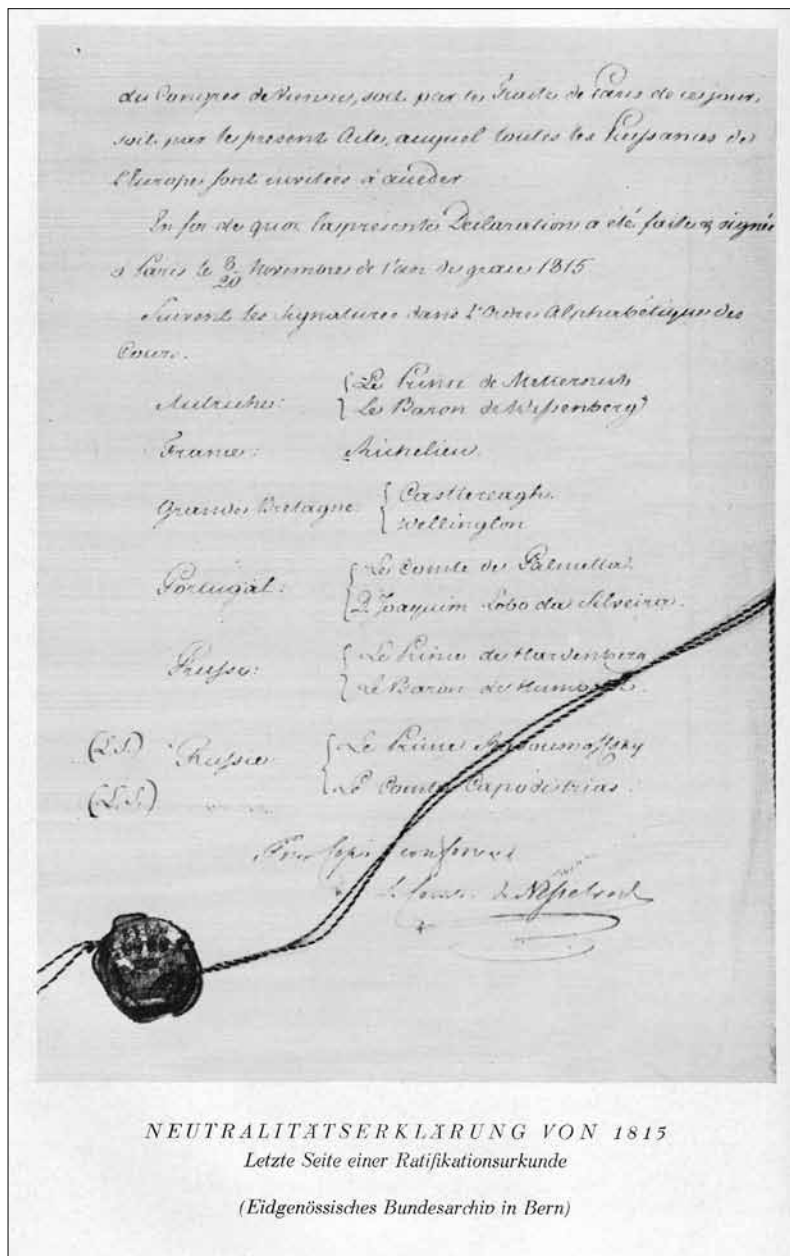 du Congres de Vienne, soit par le Traité de Paris de ce jour,
soit par le present Acte, auquel toutes les Puissances de
l'Europe sont invitées à accéder
En foi de quoi la presente Declaration a été faite & signée
à Paris le 8/20 Novembre de l'an de grace 1815
Suivent les signatures dans l'Ordre Alphabétique des
Cours.
Autriche: { Le Prince de Metternich
Le Baron de Wessenberg
France: Richelieu.
Grande Bretagne { Castlereagh.
Wellington
Portugal: { Le Comte de Palmella
D. Joaquim Lobo da Silveira.
Prusse: { Le Prince de Hardenberg
Le Baron de Humboldt.
(L.S.) Russie { Le Prince Rasoumoffsky
(L.S.) Le Comte Capodistrias.
Pour Copie conforme
Le Comte de Nesselrode
NEUTRALITÄTSERKLÄRUNG VON 1815
Letzte Seite einer Ratifikationsurkunde
(Eidgenössisches Bundesarchiv in Bern)